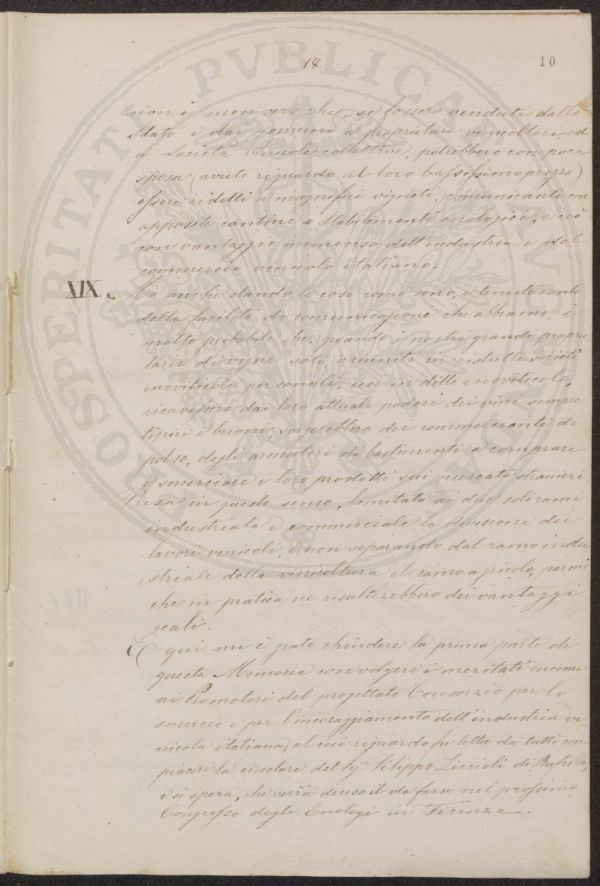 18
10
non è men vero che, se fossero venduti dallo
Stato e dai Comuni a proprietari vinicoltori, od
a Società vinicole collettive, potrebbero con poca
spesa (avuto riguardo al loro bassissimo prezzo)
essere ridotti a magnifici vigneti, comunicanti con
apposite cantine o stabilimenti enologici, e ciò
con vantaggio immenso dell'industria e del
commercio vinicolo italiano.
XIX. Ma anche stando le cose come sono, e tenuto conto
della facilità di comunicazione che abbiamo, è
molto probabile che, quando i nostri grandi proprie
tari di vigne soli o riuniti in ristrette società
enoviticole personali, in ditte enoviticole,
ricavassero dai loro attuali poderi dei vini sempre
tipici e buoni, sorgerebbero dei commercianti di
polso, degli armatori di bastimenti a comprare
e smerciare i loro prodotti sui mercati stranieri
Presa in questo senso, limitata ai due soli rami
industriale e commerciale la divisione dei
lavori vinicoli, e non separando dal ramo indu
striale della vinicoltura il ramo agricolo, parmi
che in pratica ne risulterebbero dei vantaggi
reali.
E qui mi è grato chiudere la prima parte di
questa Memoria con volgere i meritati encomi
ai Promotori del progettato Consorzio per lo
smercio e per l'incoraggiamento dell'industria vi
nicola italiana, al cui riguardo fu letta da tutti con
piacere la circolare del Sig. Filippo Liccioli di
e si spera, che verrà discusso il da farsi nel prossimo
Congresso degli Enologi in Firenze.
PROSPERITATI PVBLICAE